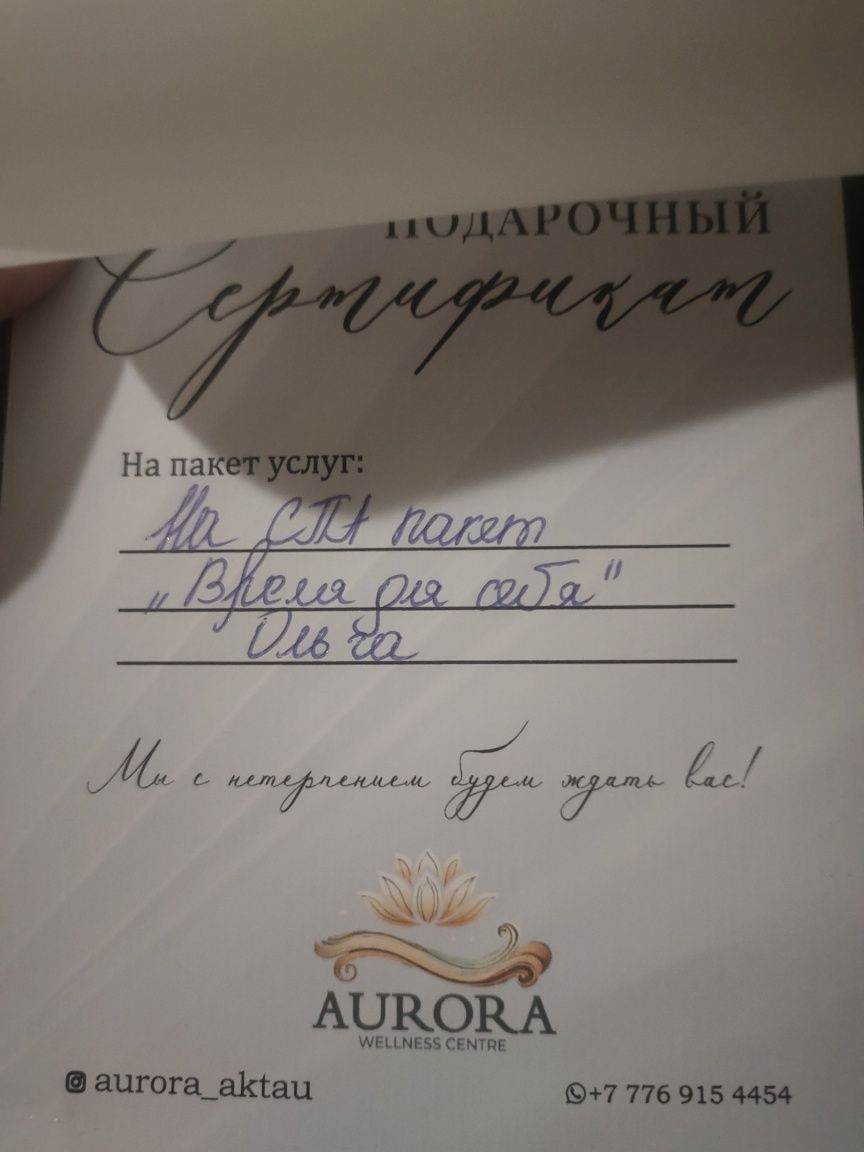 ПОДАРОЧНЫЙ
Сертификат
На пакет услуг:
На СПА пакет
„Время для себя"
Ольга
Мы с нетерпением будем ждать вас!
AURORA
WELLNESS CENTRE
aurora_aktau
+7 776 915 4454